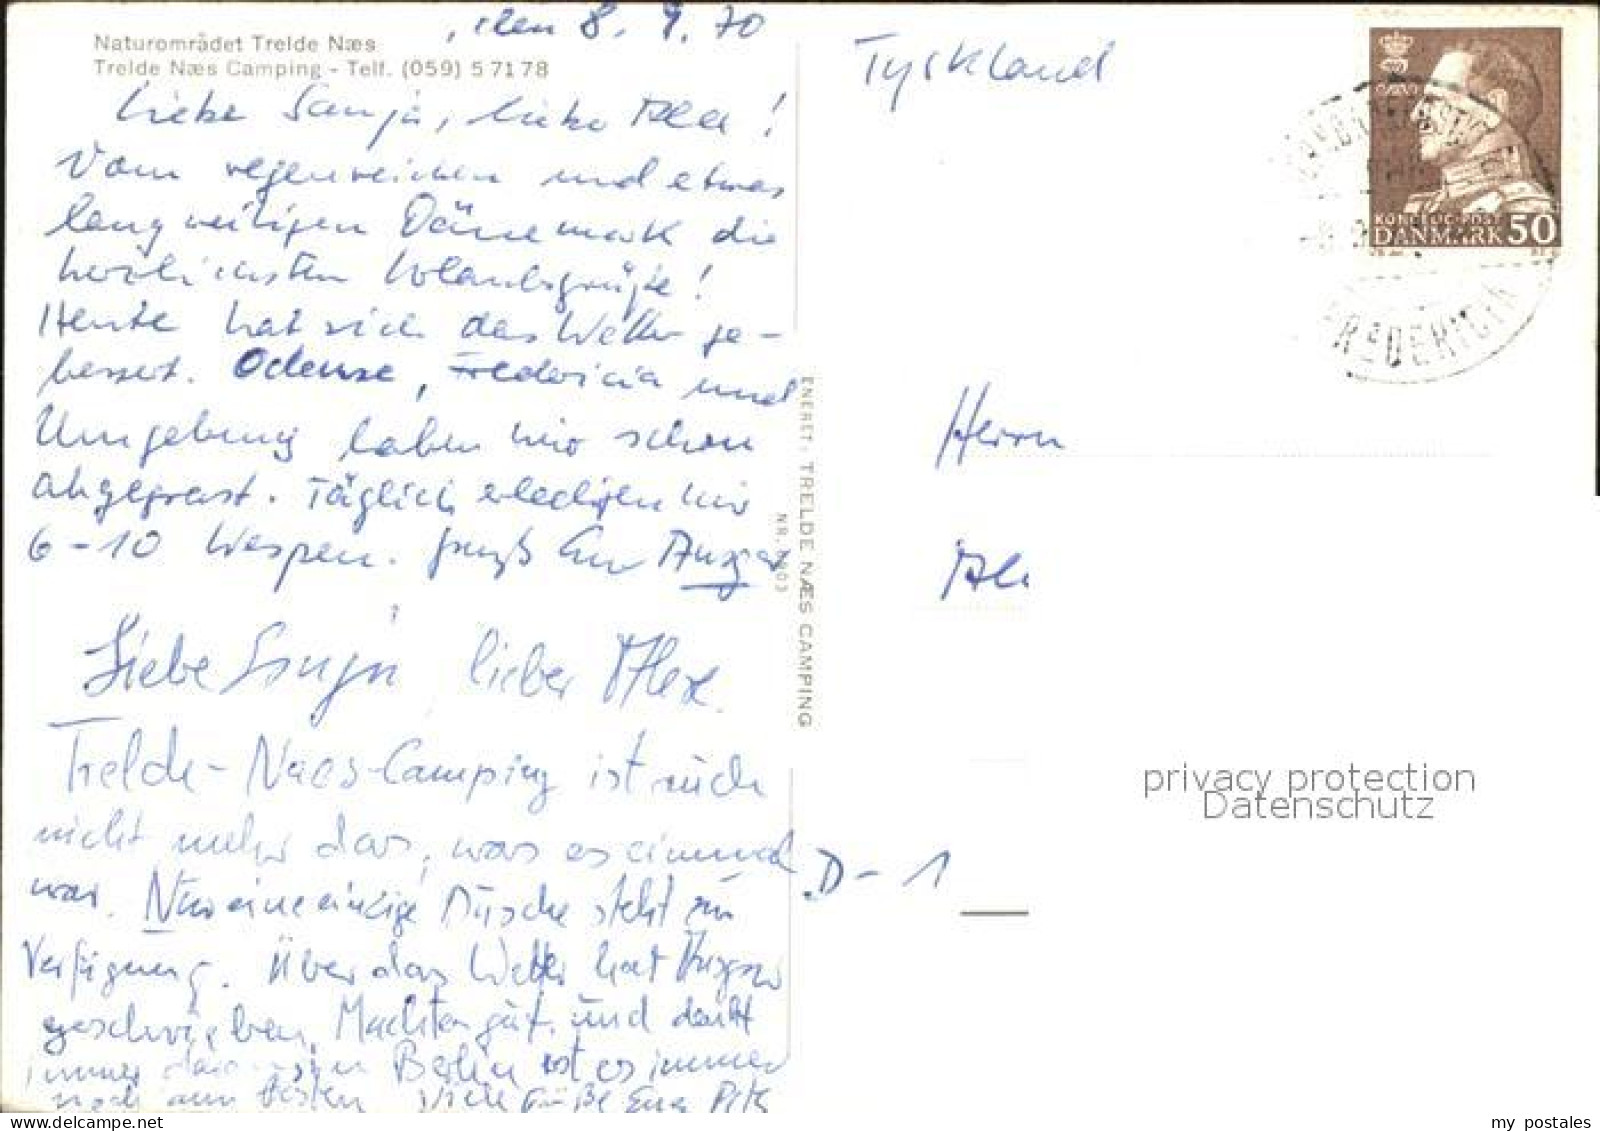 , den 8. 9. 70
Naturområdet Trelde Næs
Trelde Næs Camping - Telf. (059) 5 71 78
Liebe Sanja, lieber Alex!
Vom regenreichen und etwas
langweiligen Dänemark die
herzlichsten Urlaubsgrüße!
Heute hat sich das Wetter ge-
bessert. Odense, Fredericia und
Umgebung haben wir schon
abgegrast. Täglich erledigen wir
6-10 Wespen. Gruß Eur
Liebe Sanja, lieber Alex.
Trelde-Naes-Camping ist auch
nicht mehr das, was es einmal
war. Nur eine einzige Dusche steht zur
Verfügung. Über das Wetter hat
geschrieben. Machten gut und denkt
immer daran in Berlin ist es immer
noch am besten Viele Grüße Eure
ENERET: TRELDE NÆS CAMPING
NR.
Tyskland
KONGELIG POST
DANMARK 50
FREDERICIA
Herrn
Al
D-1
privacy protection
Datenschutz
my postales